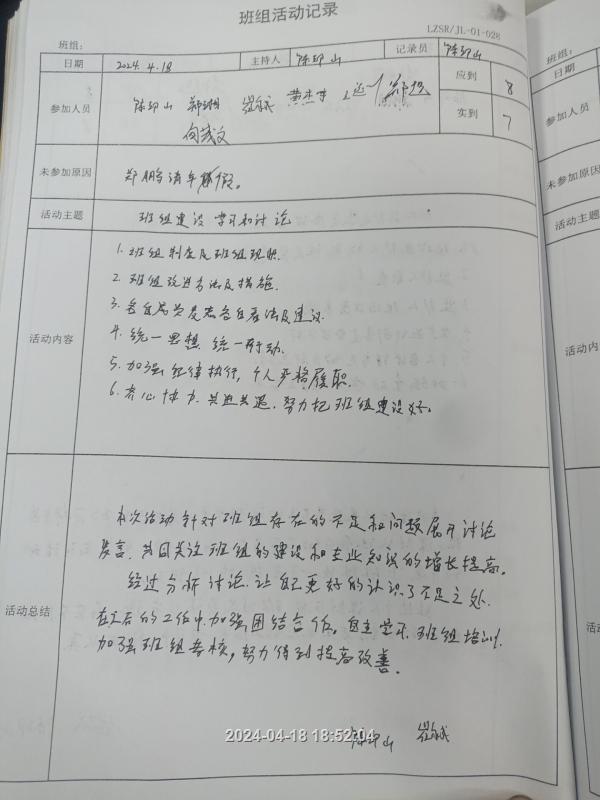 班组活动记录
LZSR/JL-01-028
班组:
日期 2024.4.18 主持人 陈印山 记录员 陈印山
参加人员 陈印山 郑湘 黄杰 应到 8
实到 7
未参加原因 郑鹏请年休假。
活动主题 班组建设 学习和讨论
活动内容
1. 班组制度及班组现状.
2. 班组改进办法及措施.
3. 各自成员表态各自看法及建议.
4. 统一思想, 统一行动.
5. 加强纪律执行, 个人严格履职.
6. 齐心协力. 共进共退. 努力把班组建设好。
活动总结
本次活动针对班组存在的不足和问题展开讨论
发言. 共同关注班组的建设和专业知识的增长提高。
经过分析讨论. 让自己更好的认识了不足之处.
在今后的工作中. 加强团结合作, 自主学习. 班组培训.
加强班组考核, 努力得到提高改善。
陈印山
2024-04-18 18:52:04
班组:
日期
参加人员
未参加原因
活动主题
活动内
活动